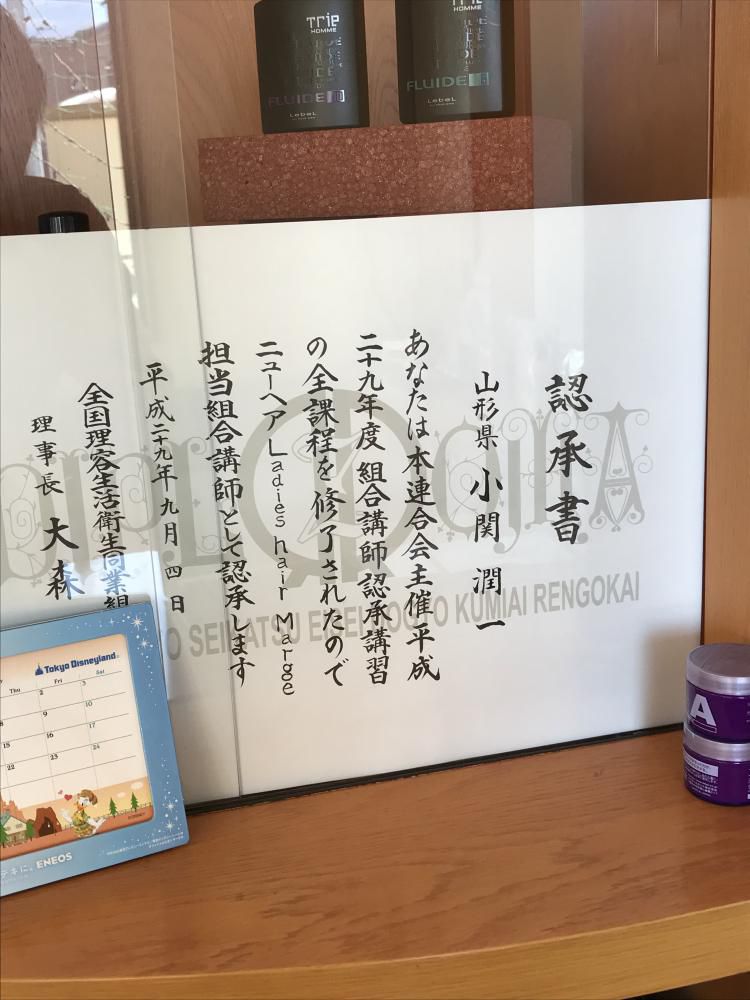 Trie
HOMME
FLUIDE
LebeL
Trie
HOMME
FLUIDE
LebeL
認承書
山形県 小関 潤一
あなたは本連合会主催平成
二十九年度組合講師認承講習
の全課程を修了されたので
ニューヘア Ladies hair Marge
担当組合講師として認承します
平成二十九年 九月 四日
全国理容生活衛生同業組
理事長 大森
KUMIAI RENGOKAI
Tokyo Disneyland
Thu Fri Sat
2 3
9 10
15 16 17
22 23 24
ENEOS
A